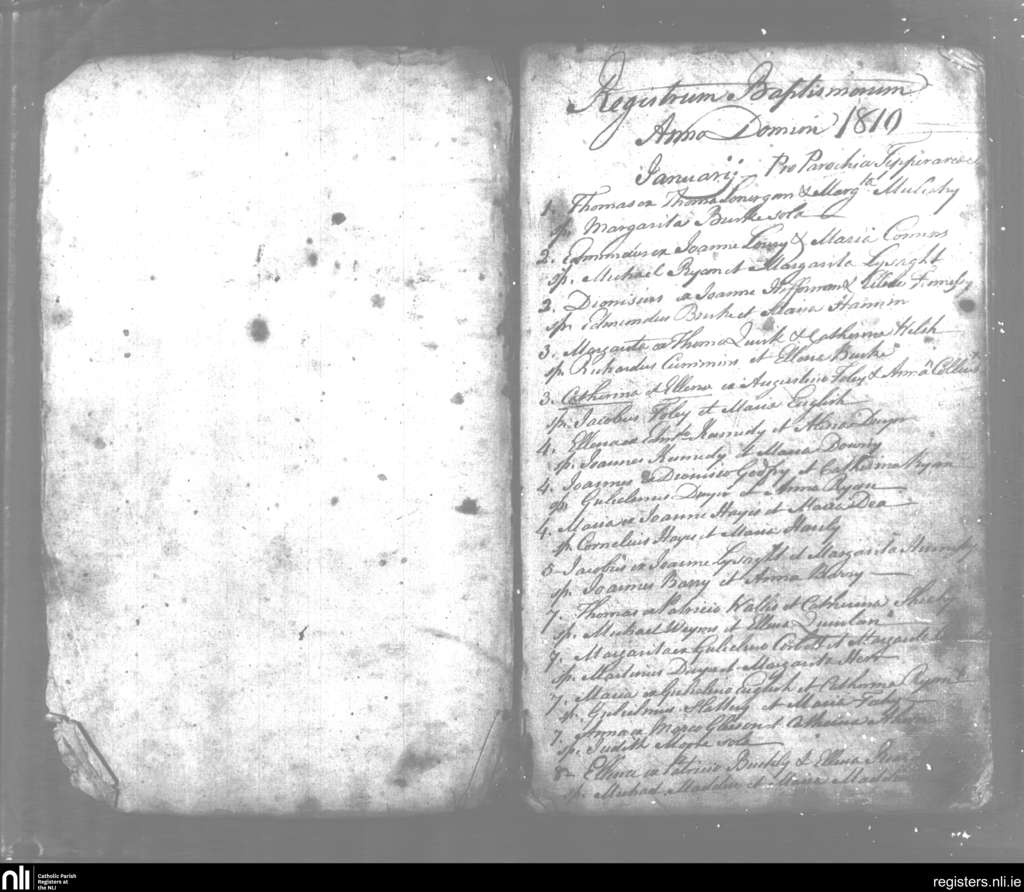 Registrum Baptismorum
Anno Domini 1810
Januarij Pro Parochia Tipperariae
1. Thomas ex Thoma Lonergan & Marg.ta Mulcahy
sp. Margarita Burke sola
2. Edmundus ex Joanne Lowry & Maria Connors
sp. Michael Ryan et Margarita Lysaght
2. Dionisius ex Joanne Heffernan & Ellena Finnessy
sp. Edmundus Burke et Maria Hannin
3. Margarita ex Thoma Quirk & Catherina Welsh
sp. Richardus Cummins et Ellena Burke
3. Catherina & Ellena ex Augustino Foley & Anna
sp. Jacobus Foley et Maria English
4. Ellena ex Edm.do Kennedy et Dwyer
sp. Joannes Kennedy et Maria Downy
4. Joannes ex Dionisio Godfry et Catherina Ryan
sp. Gulielmus Dwyer et Anna Ryan
4. Maria ex Joanne Hayes et Maria Dea
sp. Cornelius Hayes et Maria Hanly
5 Jacobus ex Joanne Lysaght et Margarita Kennedy
sp. Joannes Barry et Anna Barry
7. Thomas ex Patricio Wallis et Catherina Sheehy
sp. Michael Meyers et Ellena Quinlan
7. Margarita ex Gulielmo Corbett et Margarita
sp. Martinus Dwyer et Margarita
7. Maria ex Gulielmo English et Catherina Ryan
sp. Gulielmus Slattery et Maria
7. Anna ex Gleeson et Catherina
sp. Judith sola
8 Ellena ex Patricio Buckly & Ellena
sp. Michael Madden et Maria Madden
nli
Catholic Parish
Registers at
the NLI
registers.nli.ie